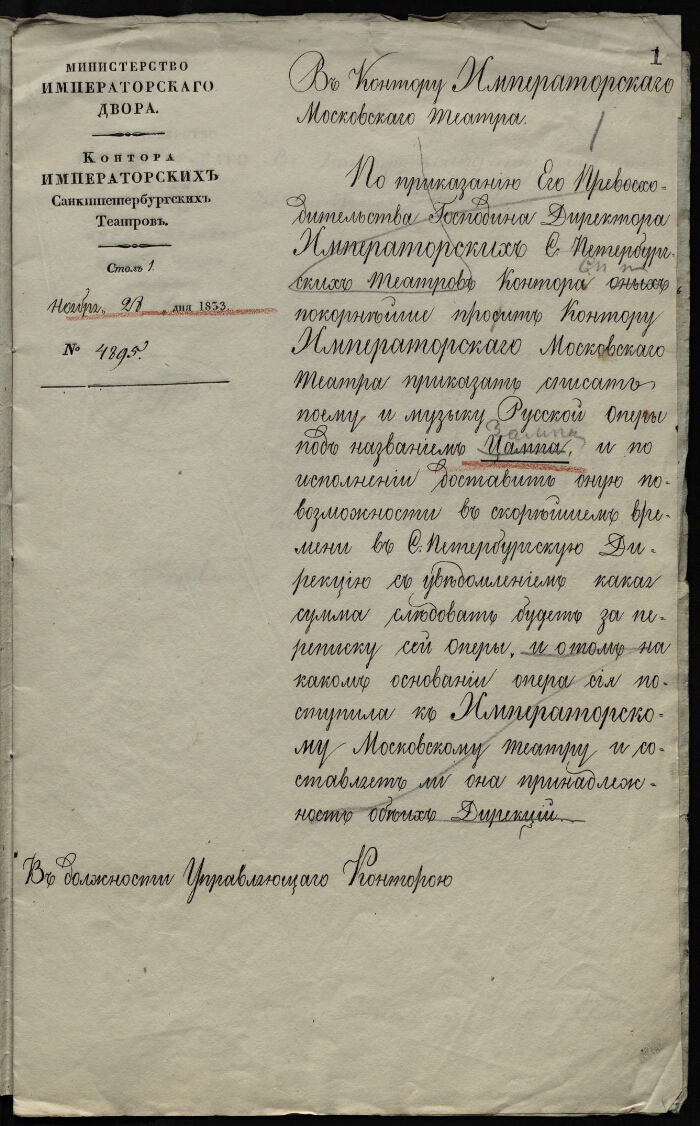 1
МИНИСТЕРСТВО
ИМПЕРАТОРСКАГО
ДВОРА.
КОНТОРА
ИМПЕРАТОРСКИХЪ
Санктпетербургскихъ
Театровъ.
Столъ 1.
Ноябр. 28 дня 1833.
№ 4895.
Въ Контору Императорскаго
Московскаго театра.
По приказанію Его Превосхо-
дительства Господина Директора
Императорскихъ С. Петербург-
скихъ театровъ Контора оныхъ
покорнѣйше проситъ Контору
Императорскаго Московскаго
театра приказать списать
поему и музыку Русской оперы
Зампа
подъ названіемъ Цампа, и по
исполненіи доставить оную по-
возможности въ скорѣйшемъ вре-
мени въ С. Петербургскую Ди-
рекцію съ увѣдомленіемъ какая
сумма слѣдовать будетъ за пе-
реписку сей оперы, и о томъ на
какомъ основаніи опера сія по-
ступила къ Императорско-
му Московскому театру и со-
ставляетъ ли она принадлеж-
ность обѣихъ Дирекцій.
Въ должности Управляющаго Конторою